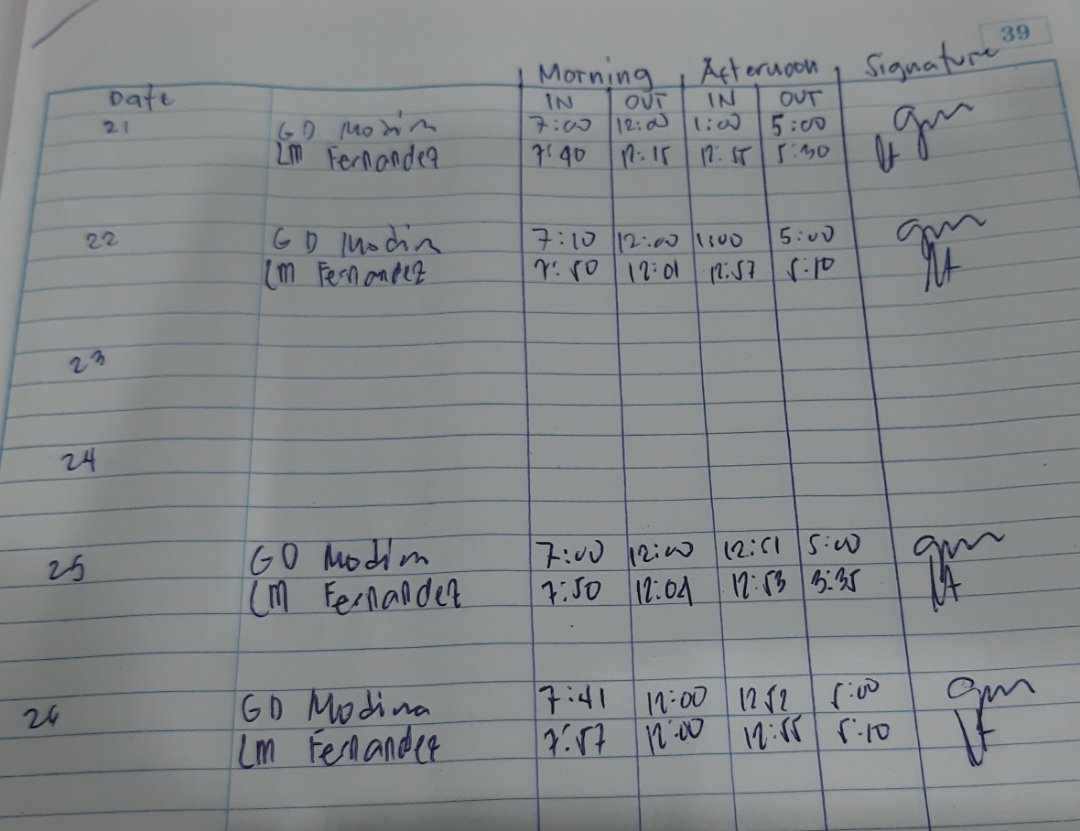 39
Morning Afternoon Signature
Date IN OUT IN OUT
21 GD Modina 7:00 12:00 1:00 5:00 gm
LM Fernandez 7:40 12:15 12:55 5:30
22 GD Modina 7:10 12:00 1:00 5:00 gm
LM Fernandez 7:50 12:01 12:57 5:10
23
24
25 GD Modina 7:00 12:00 12:51 5:00 gm
LM Fernandez 7:50 12:01 12:53 3:35
26 GD Modina 7:41 12:00 12 52 5:00 gm
LM Fernandez 7:57 12:00 12:55 5:10